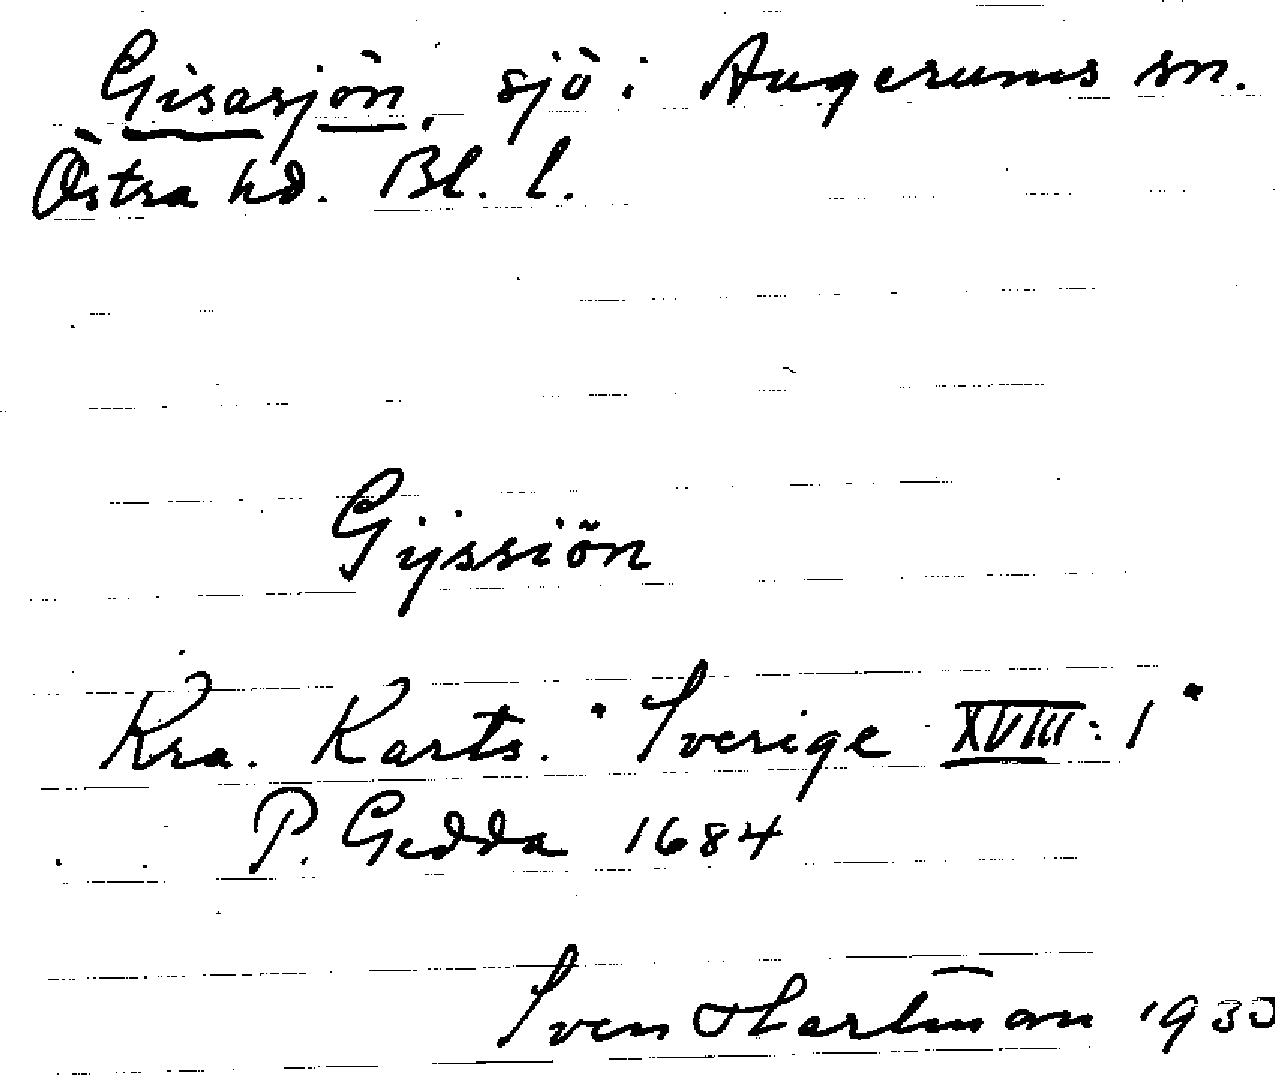 Gisasjön, sjö i Augerums sn.
Östra hd. Bl. l.
Gijssiön
Kra. Karts. "Sverige XVIII:1"
P. Gedda 1684
Sven Hartman